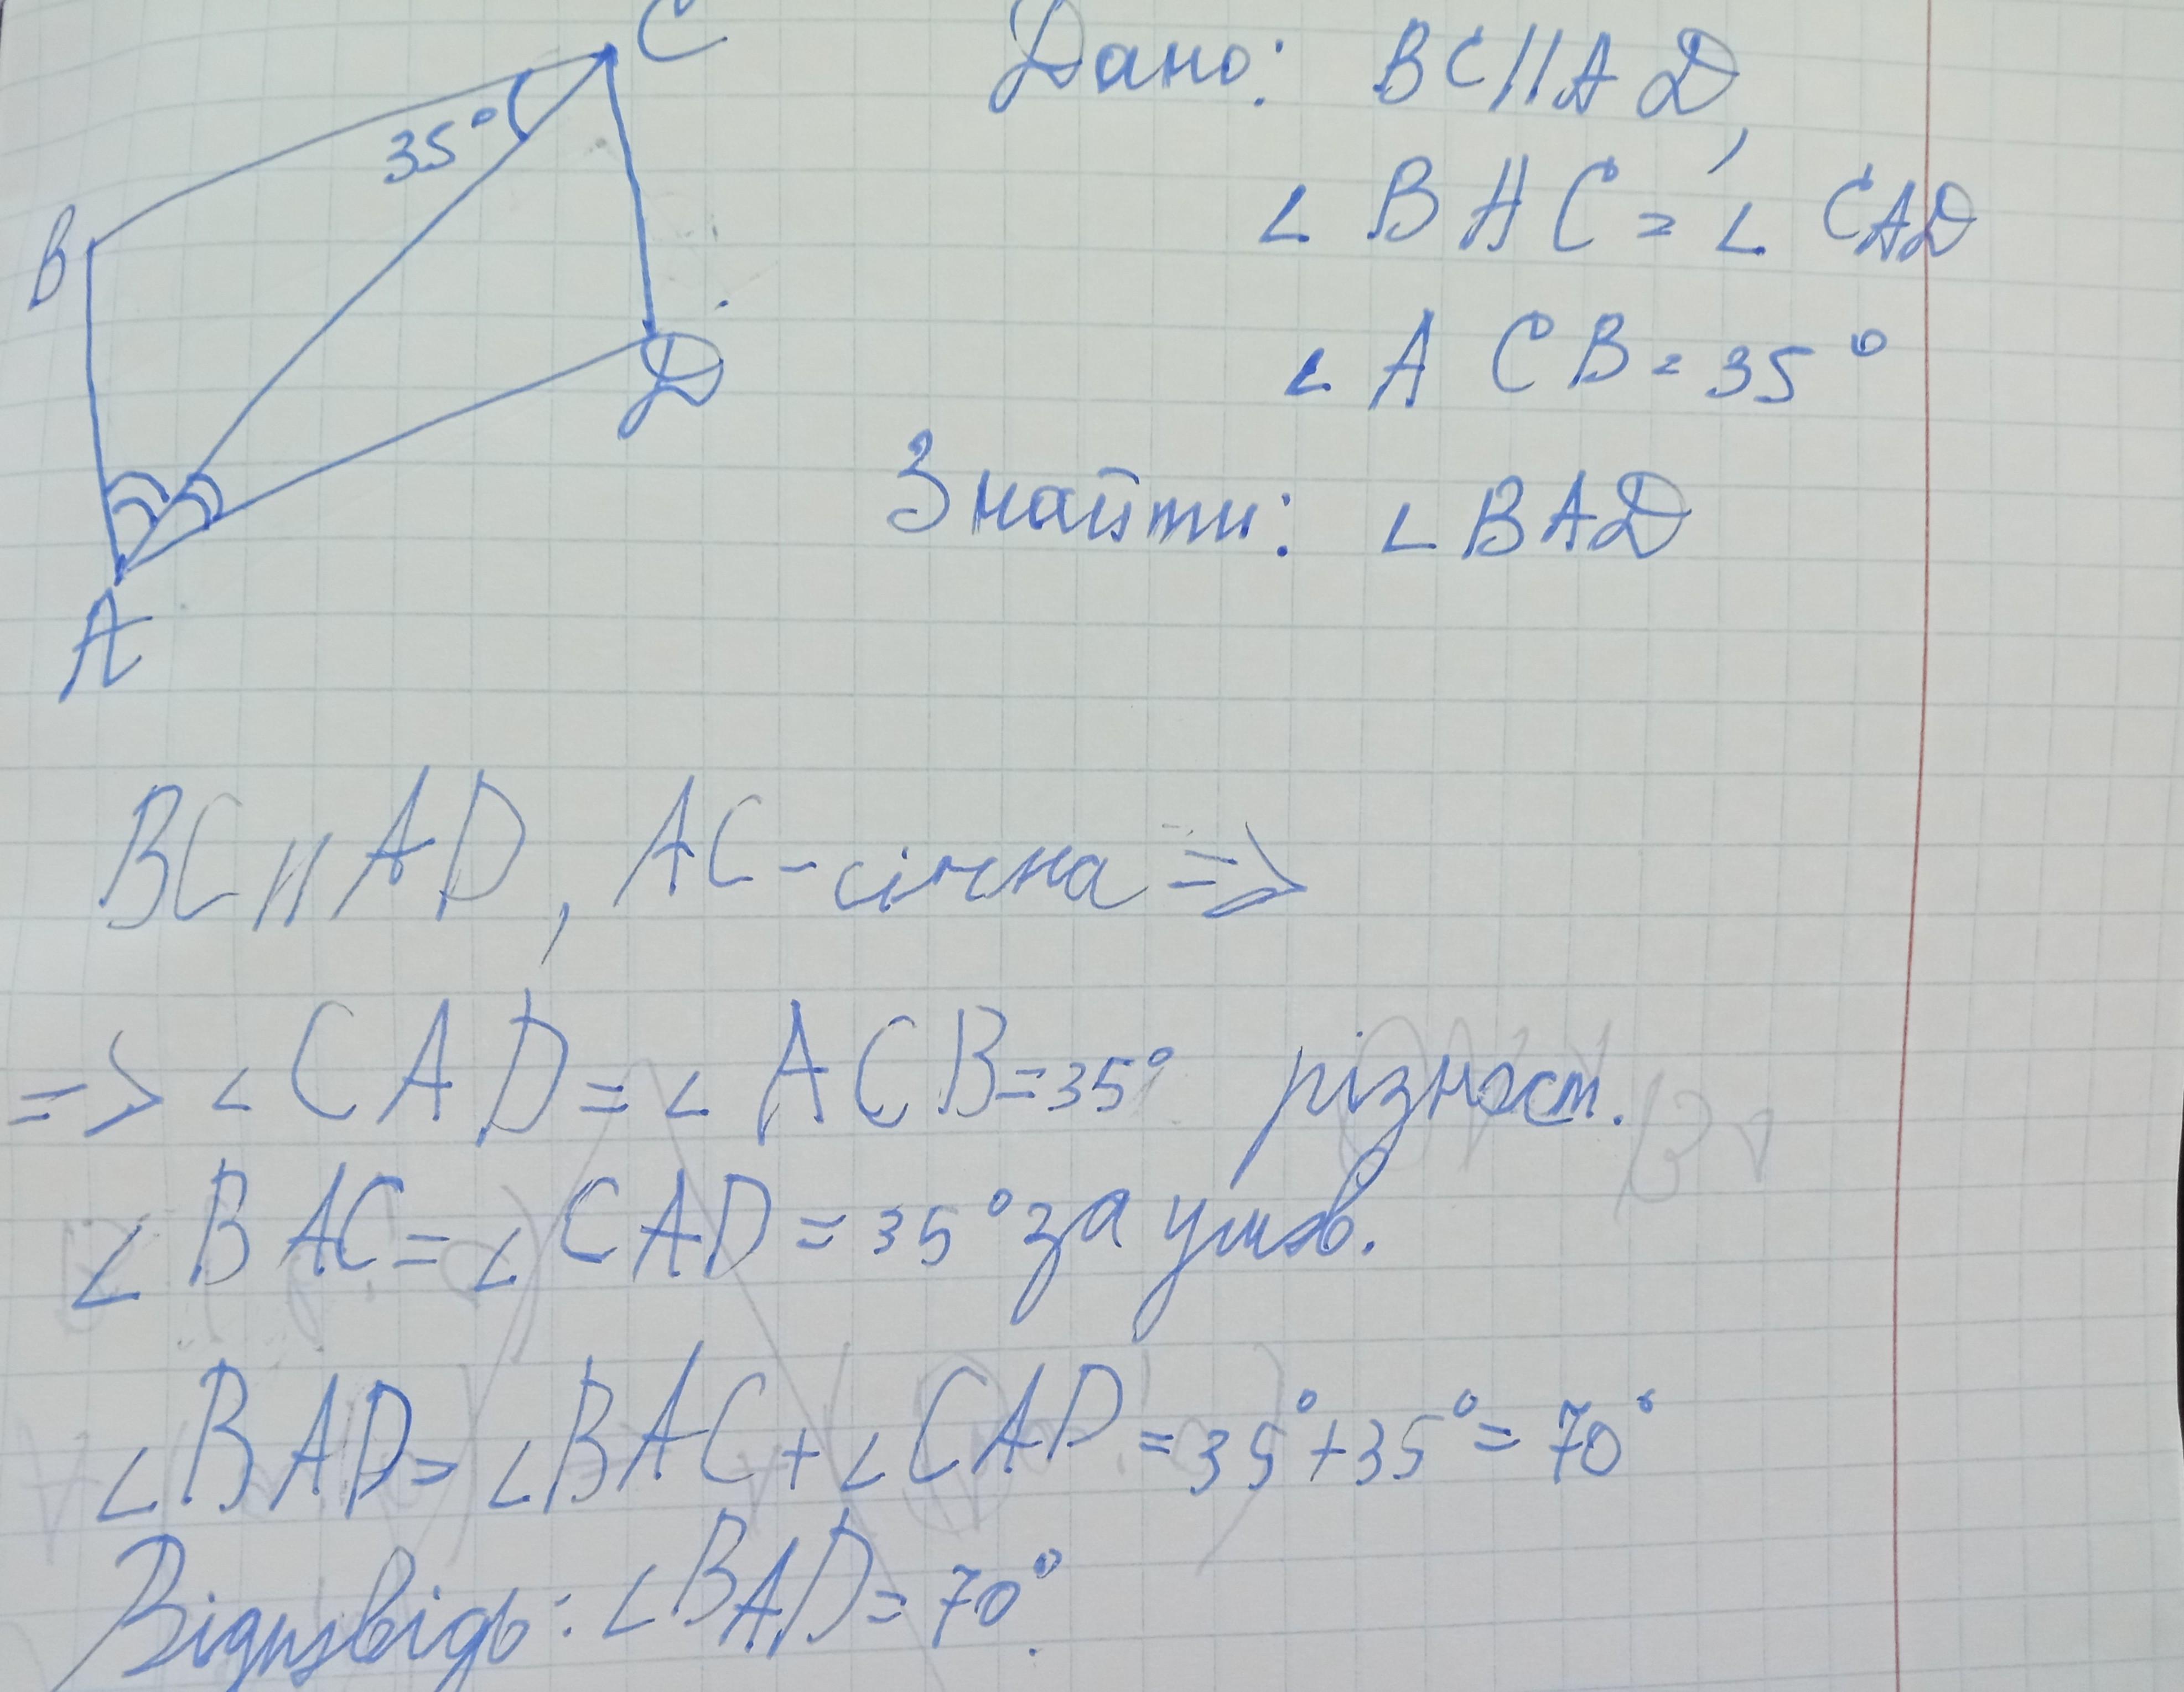 C
35°
B
D
A
Дано: BC||AD,
∠BAC=∠CAD
∠ACB=35°
Знайти: ∠BAD
BC||AD, AC-січна =>
=> ∠CAD=∠ACB=35° різност.
∠BAC=∠CAD=35° за умов.
∠BAD=∠BAC+∠CAD=35°+35°=70°
Відповідь: ∠BAD=70°.